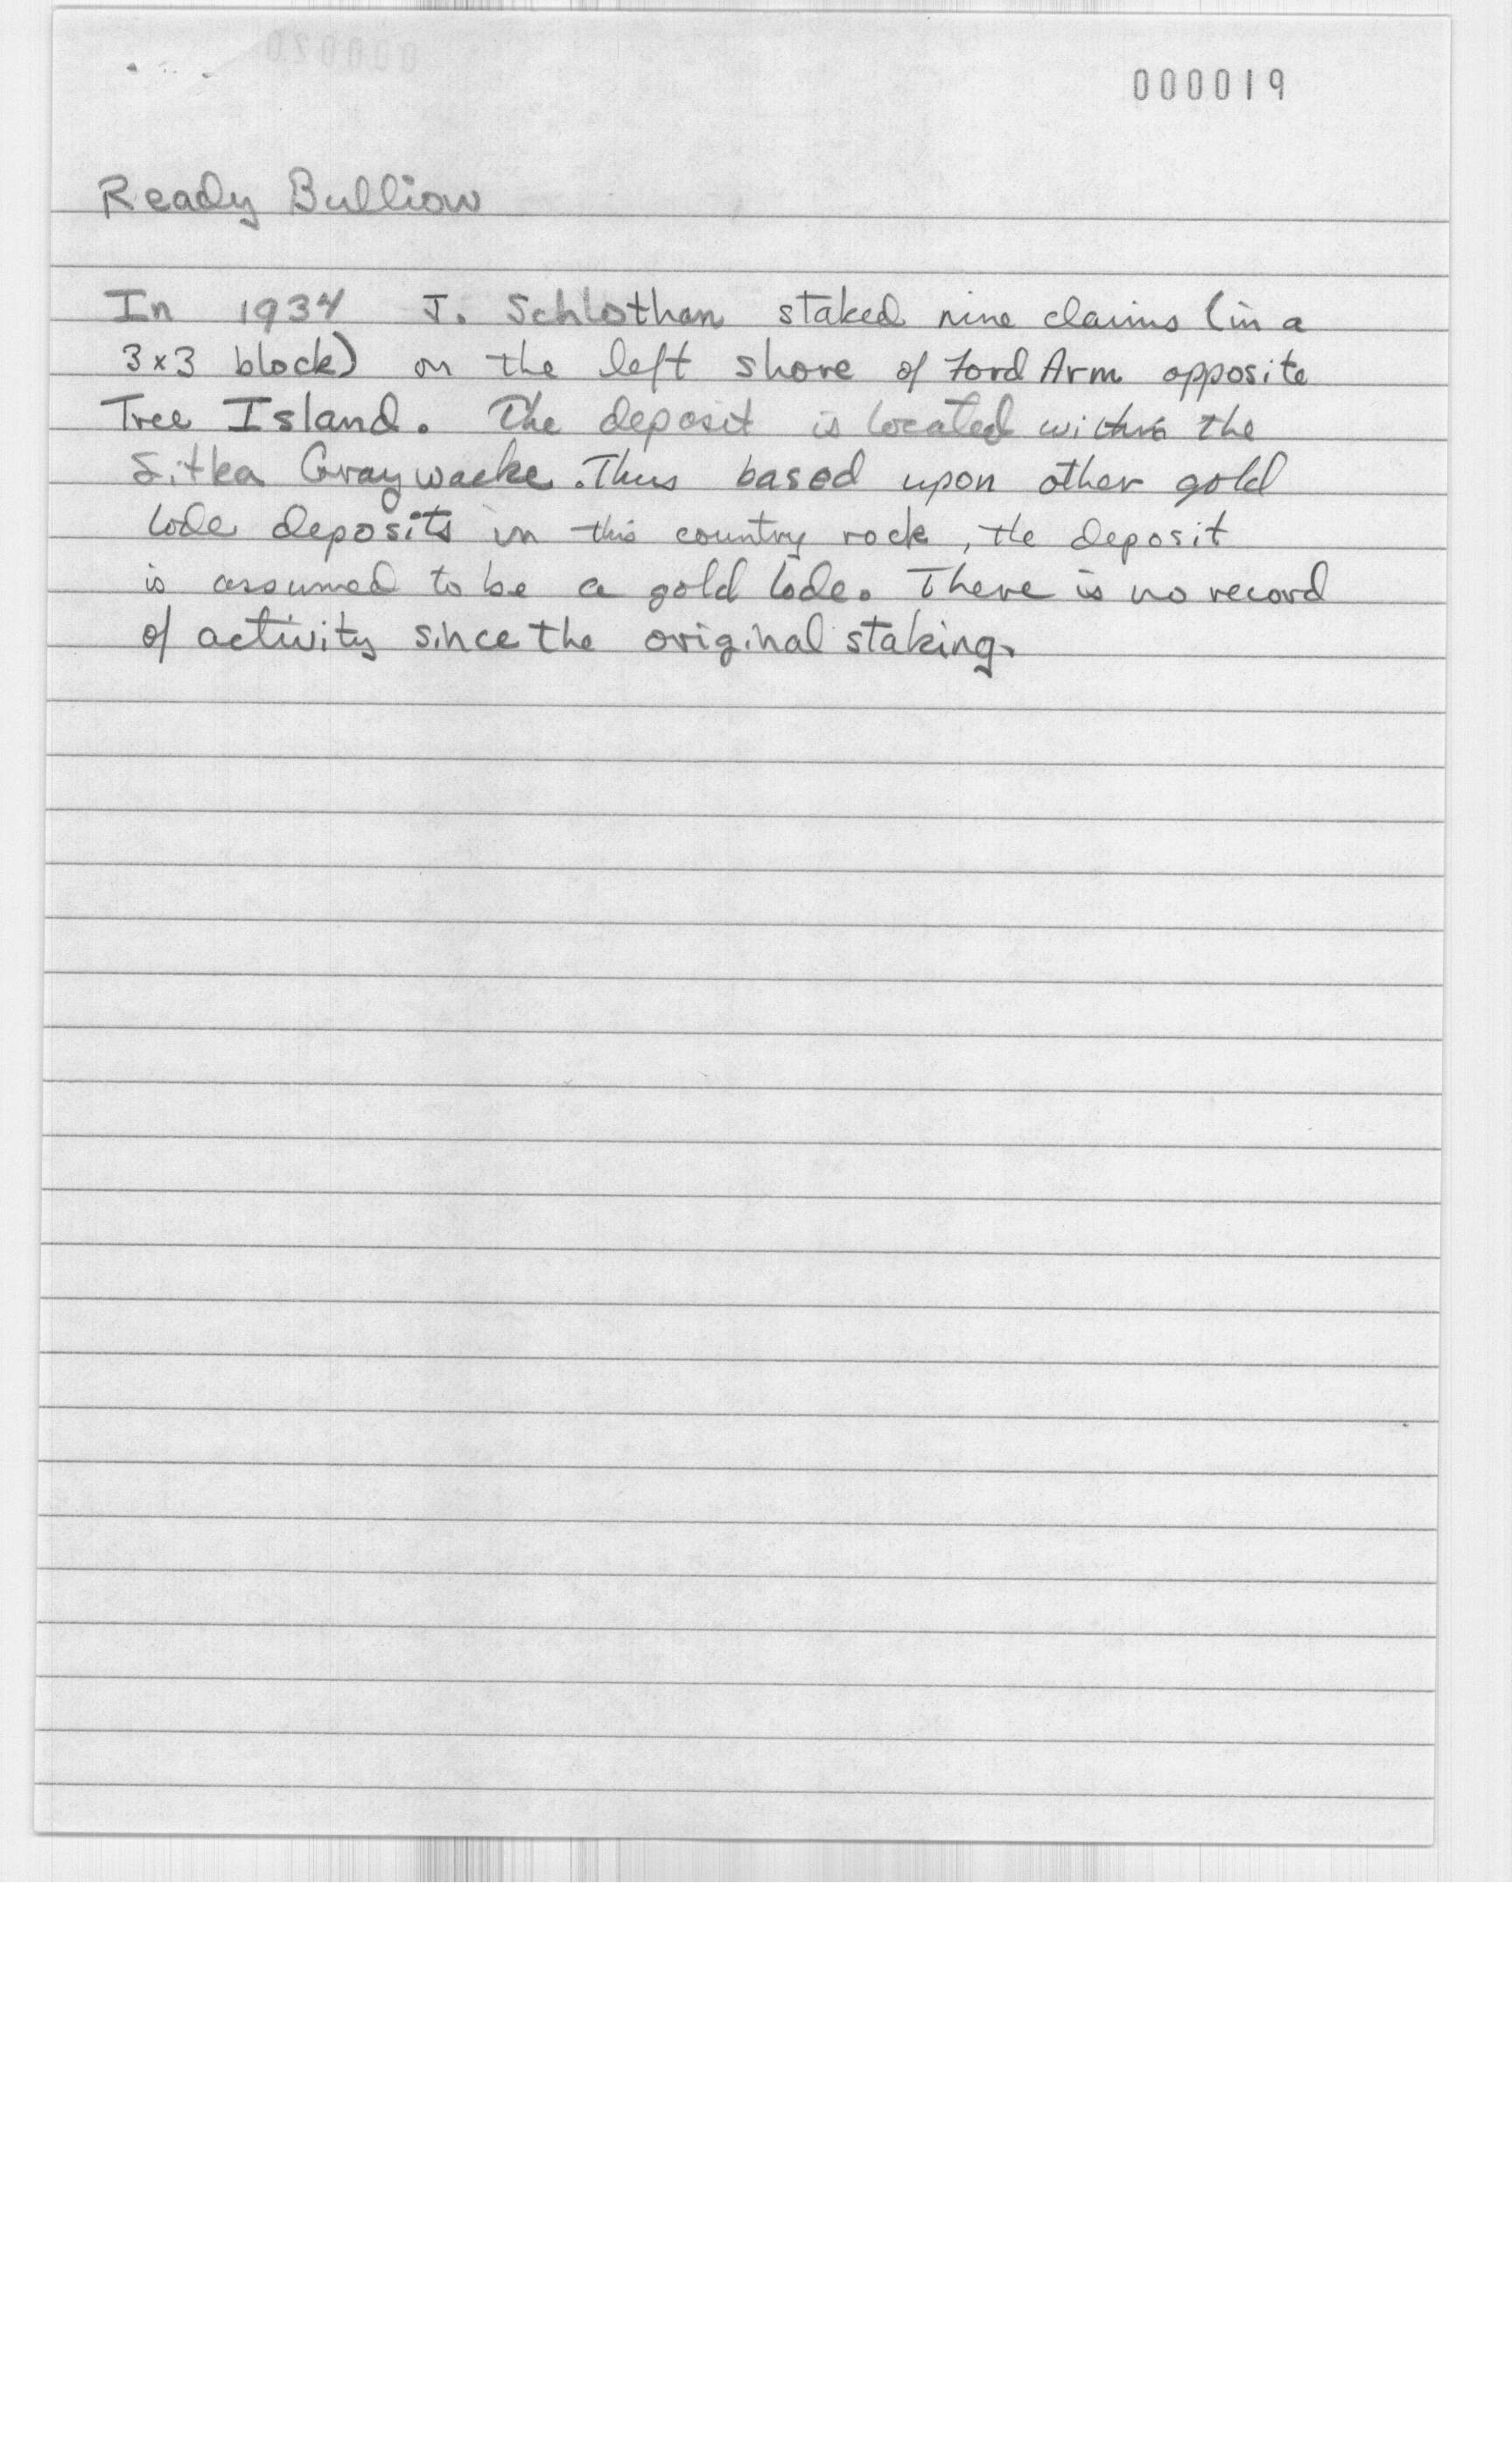 000019
Ready Bullion
In 1934 J. Schlothan staked nine claims (in a
3x3 block) on the left shore of Ford Arm opposite
Tree Island. The deposit is located within the
Sitka Graywacke. Thus based upon other gold
lode deposits in this country rock, the deposit
is assumed to be a gold lode. There is no record
of activity since the original staking.